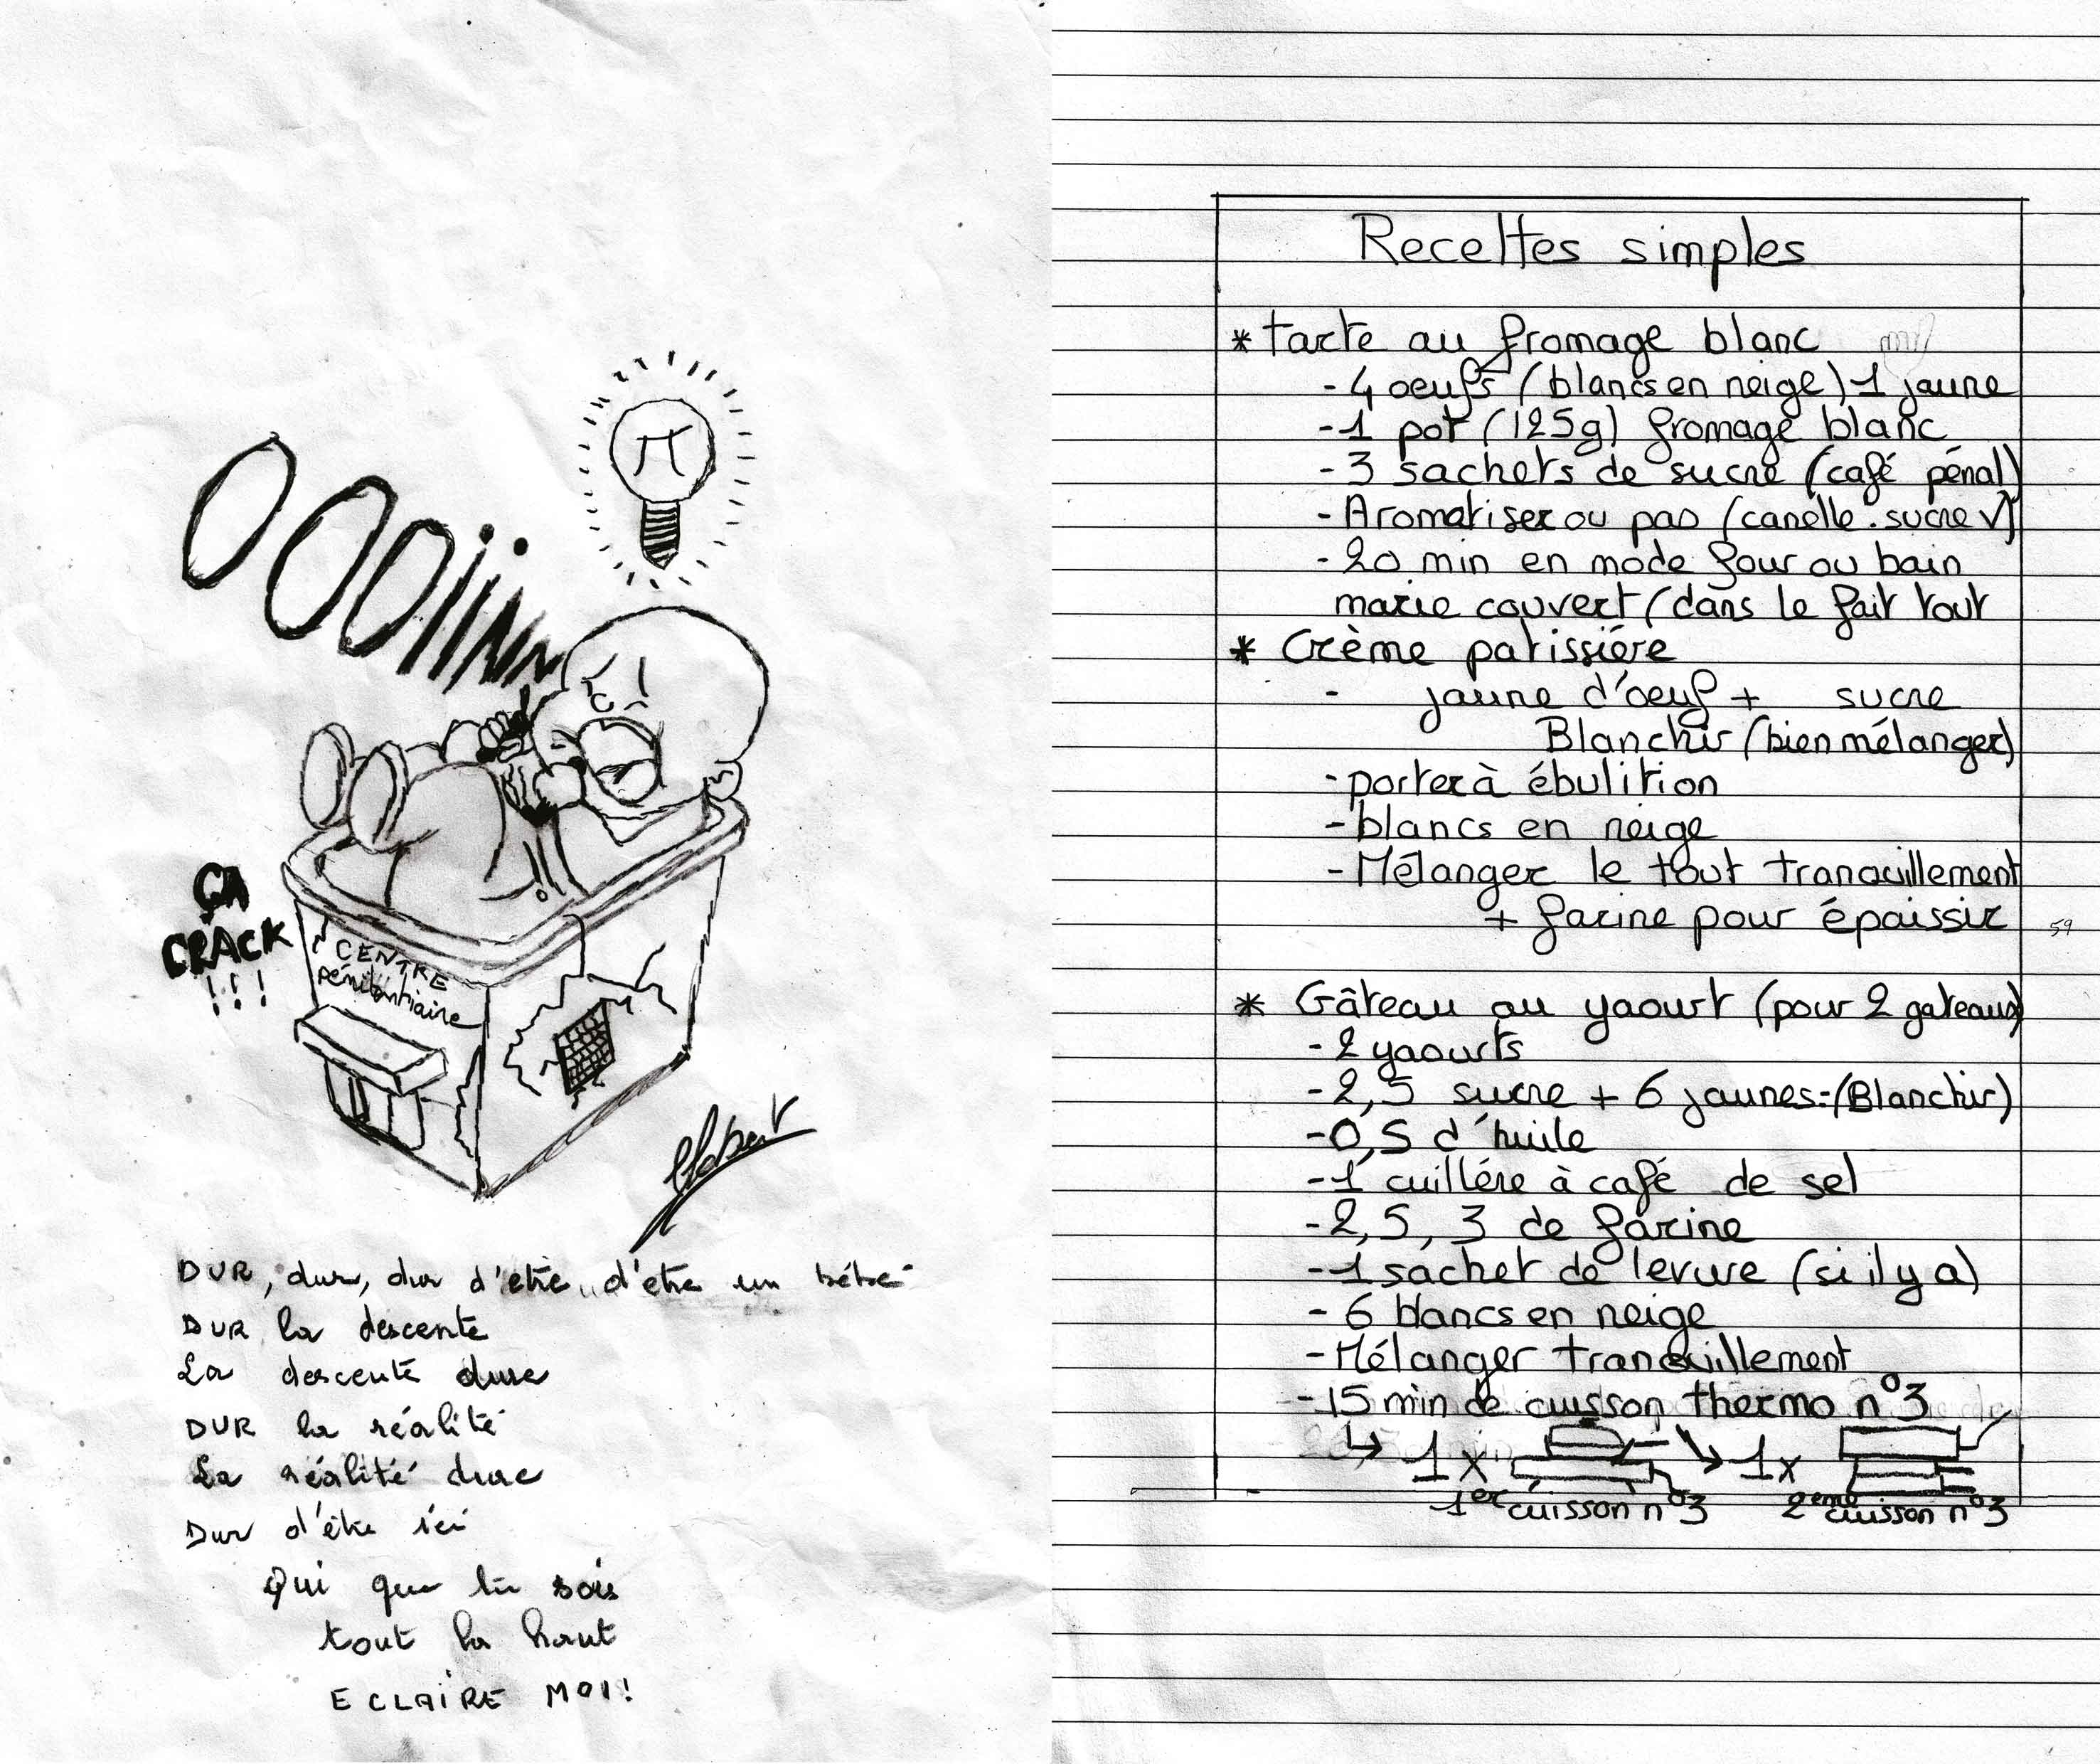 OOOiiinnn
π
ÇA
CRACK
!!!
CENTRE
pénitentiaire
DUR, dur, dur d'etre, d'etre un bébé
DUR la descente
La descente dure
DUR la réalité
La réalité dure
Dur d'être ici
Qui que tu sois
tout la haut
ECLAIRE MOI!
Recettes simples
* tarte au fromage blanc
- 4 oeufs (blancs en neige) 1 jaune
- 1 pot (125g) fromage blanc
- 3 sachets de sucre (café pénal)
- Aromatiser ou pas (canelle. sucre V)
- 20 min en mode four ou bain
marie couvert (dans le fait tout
* Crème patissiére
- jaune d'oeuf + sucre
Blanchir (bien mélanger)
- porter à ébulition
- blancs en neige
- Mélanger le tout tranquillement
+ farine pour épaissir
59
* Gâteau au yaourt (pour 2 gateaux)
- 2 yaourts
- 2,5 sucre + 6 jaunes = (Blanchir)
- 0,5 d'huile
- 1 cuillére à café de sel
- 2,5, 3 de farine
- 1 sachet de levure (si il y a)
- 6 blancs en neige
- Mélanger tranquillement
- 15 min de cuisson thermo n°3
1x 1x
1er cuisson n°3 2eme cuisson n°3